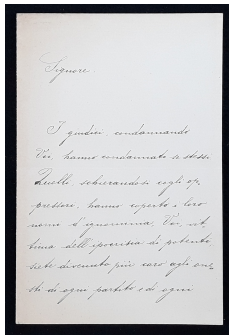 Signore
I giudici, condannando
Voi, hanno condannato se stessi.
Quelli, schierandosi cogli op-
pressori, hanno coperto i loro
nomi d'ignominia. Voi, vit-
tima dell'ipocrisia di potenti,
siete divenuto più caro agli one-
sti di ogni partito e di ogni